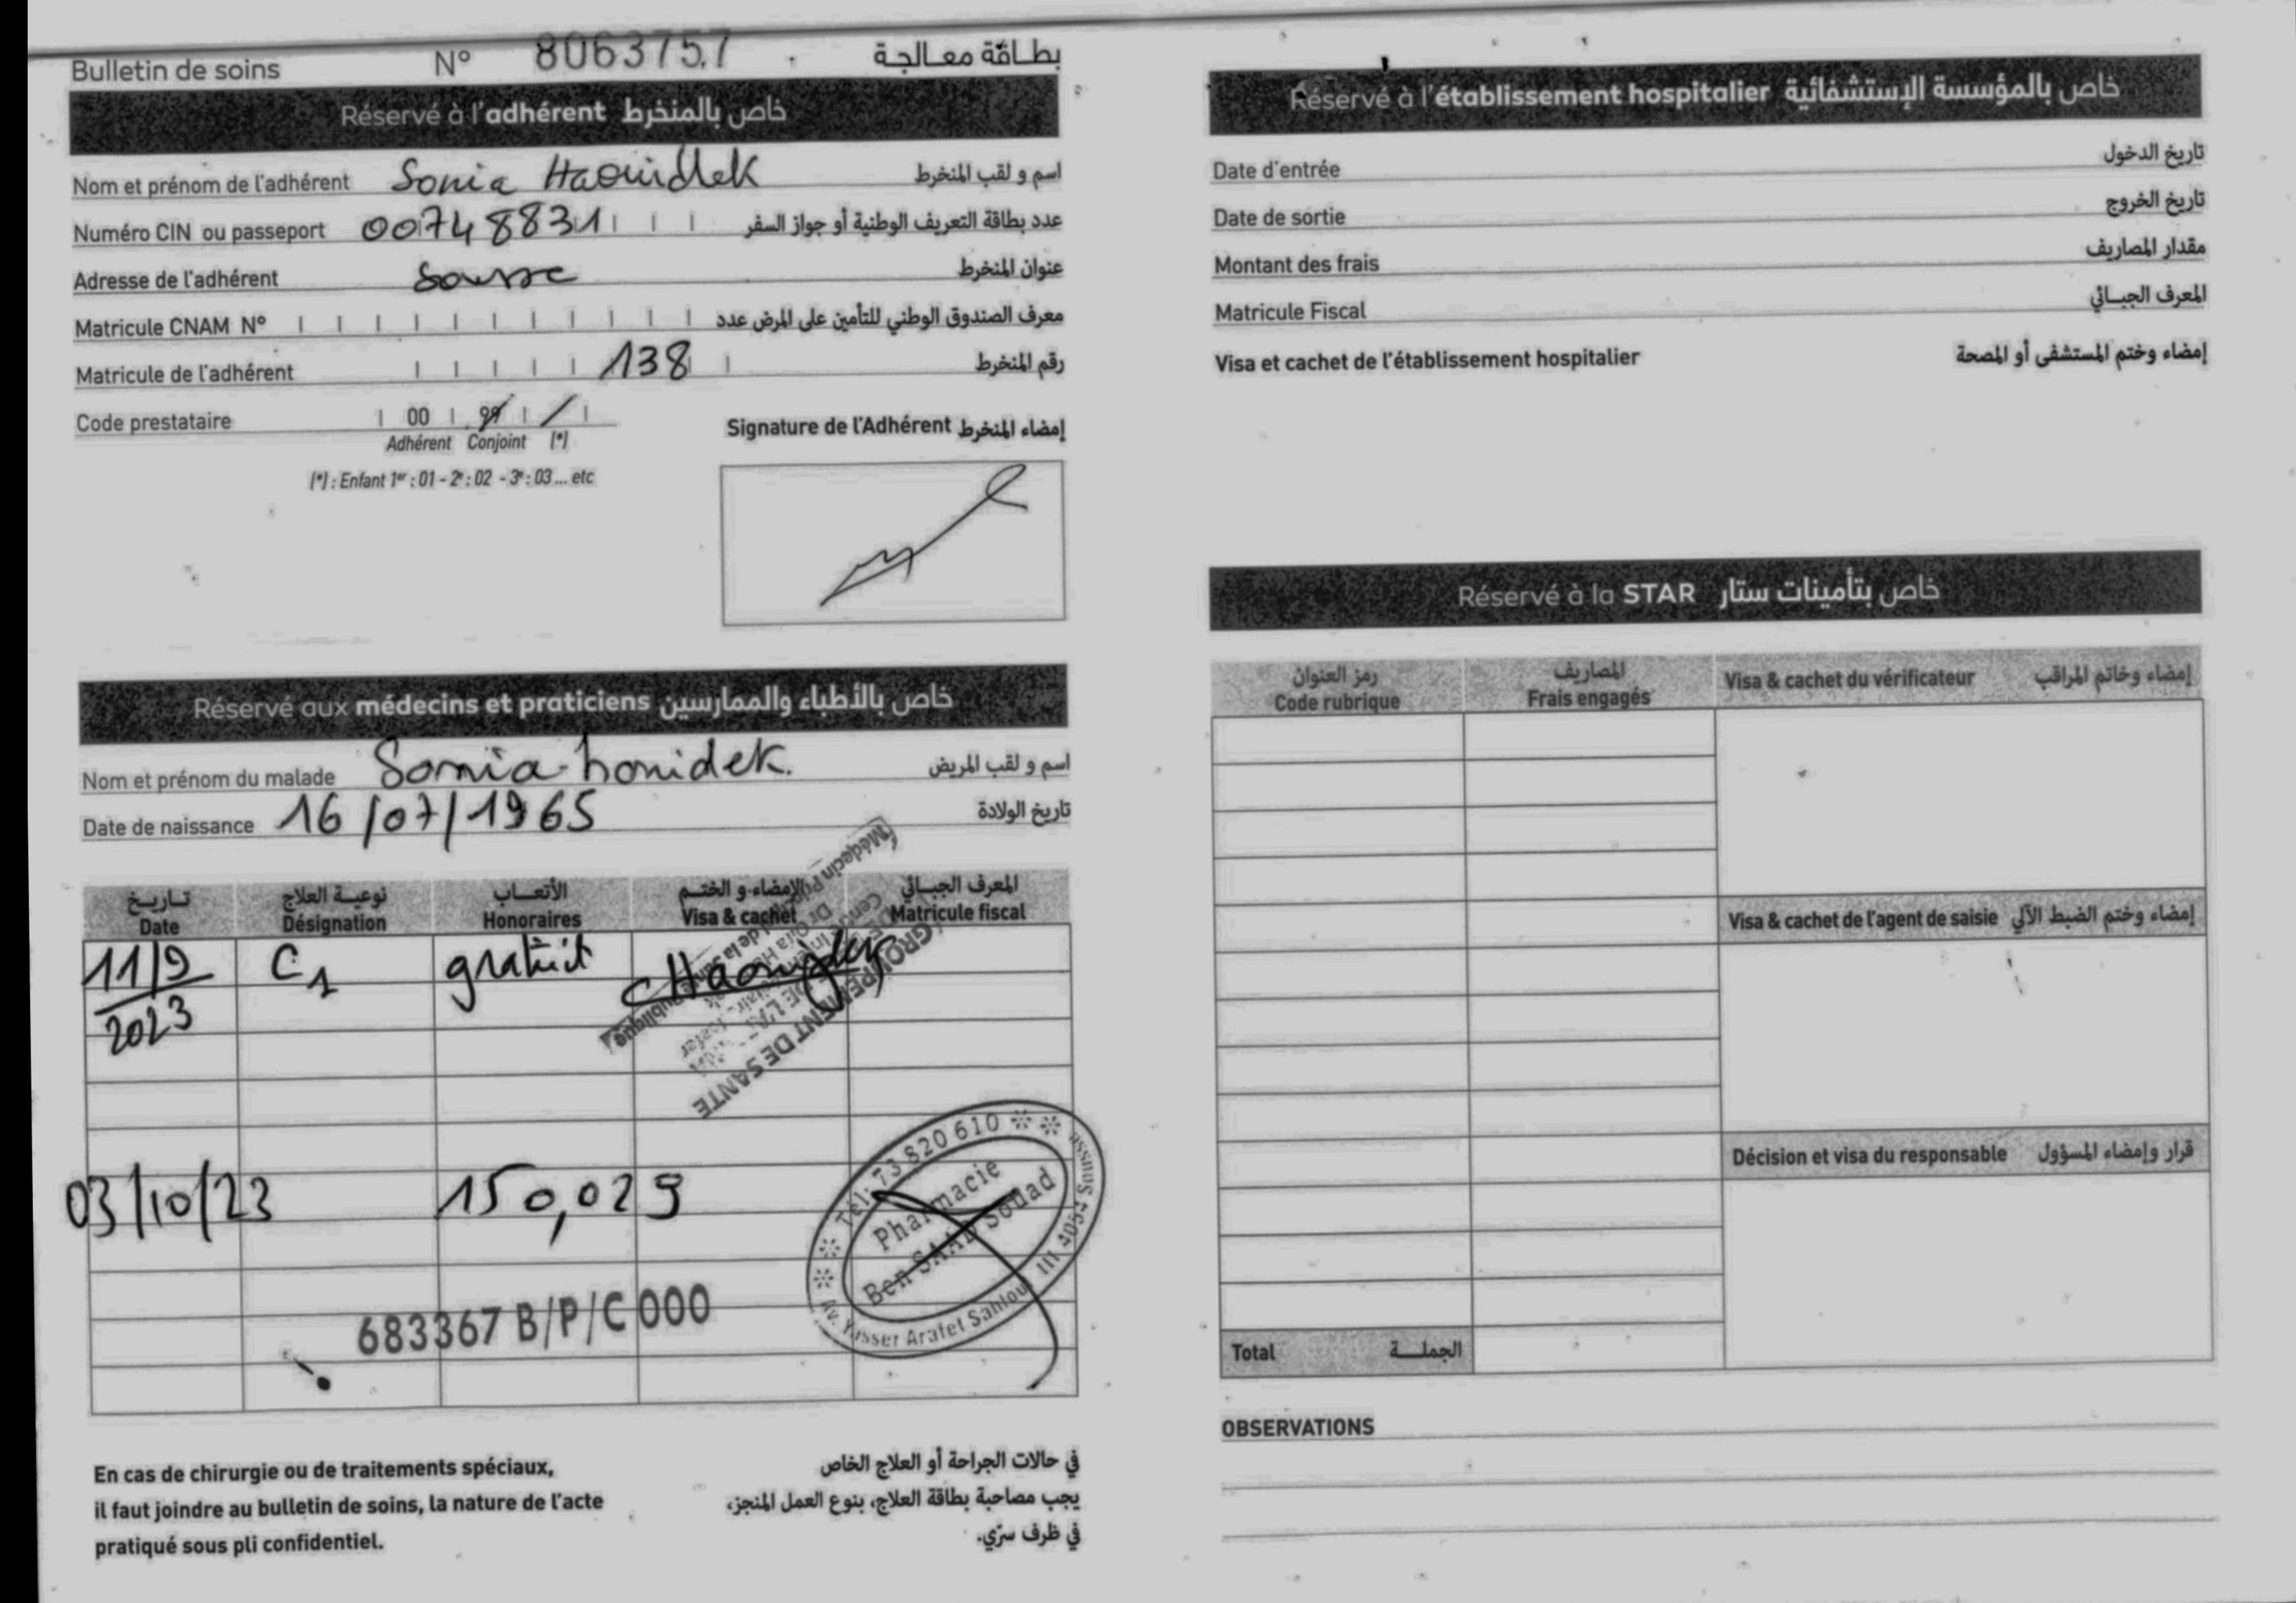 Bulletin de soins N° 8063757 بطاقة معالجة
Réservé à l'adhérent خاص بالمنخرط
Nom et prénom de l'adhérent Sonia Haouidek اسم و لقب المنخرط
Numéro CIN ou passeport 00748831 عدد بطاقة التعريف الوطنية أو جواز السفر
Adresse de l'adhérent Sousse عنوان المنخرط
Matricule CNAM N° معرف الصندوق الوطني للتأمين على المرض عدد
Matricule de l'adhérent 138 رقم المنخرط
Code prestataire 00 99 /
Adhérent Conjoint (*)
(*) : Enfant 1er : 01 - 2e : 02 - 3e : 03 ... etc
Signature de l'Adhérent إمضاء المنخرط
Réservé aux médecins et praticiens خاص بالأطباء والممارسين
Nom et prénom du malade Sonia houidek. اسم و لقب المريض
Date de naissance 16/07/1965 تاريخ الولادة
تاريخ نوعية العلاج الأتعاب الإمضاء و الختم المعرف الجبائي
Date Désignation Honoraires Visa & cachet Matricule fiscal
11/9/2023 C1 gratuit
GROUPEMENT DE SANTE
03/10/23 150,029
Tél: 73 820 610
Pharmacie
Ben SAAD Souad
Av. Yasser Arafet Sahloul III 4054 Sousse
683367 B/P/C 000
En cas de chirurgie ou de traitements spéciaux,
il faut joindre au bulletin de soins, la nature de l'acte
pratiqué sous pli confidentiel.
في حالات الجراحة أو العلاج الخاص
يجب مصاحبة بطاقة العلاج، بنوع العمل المنجز،
في ظرف سرّي.
Réservé à l'établissement hospitalier خاص بالمؤسسة الإستشفائية
Date d'entrée تاريخ الدخول
Date de sortie تاريخ الخروج
Montant des frais مقدار المصاريف
Matricule Fiscal المعرف الجبائي
Visa et cachet de l'établissement hospitalier إمضاء وختم المستشفى أو المصحة
Réservé à la STAR خاص بتأمينات ستار
رمز العنوان المصاريف
Code rubrique Frais engagés Visa & cachet du vérificateur إمضاء وخاتم المراقب
Visa & cachet de l'agent de saisie إمضاء وختم الضبط الآلي
Décision et visa du responsable قرار وإمضاء المسؤول
Total الجملة
OBSERVATIONS